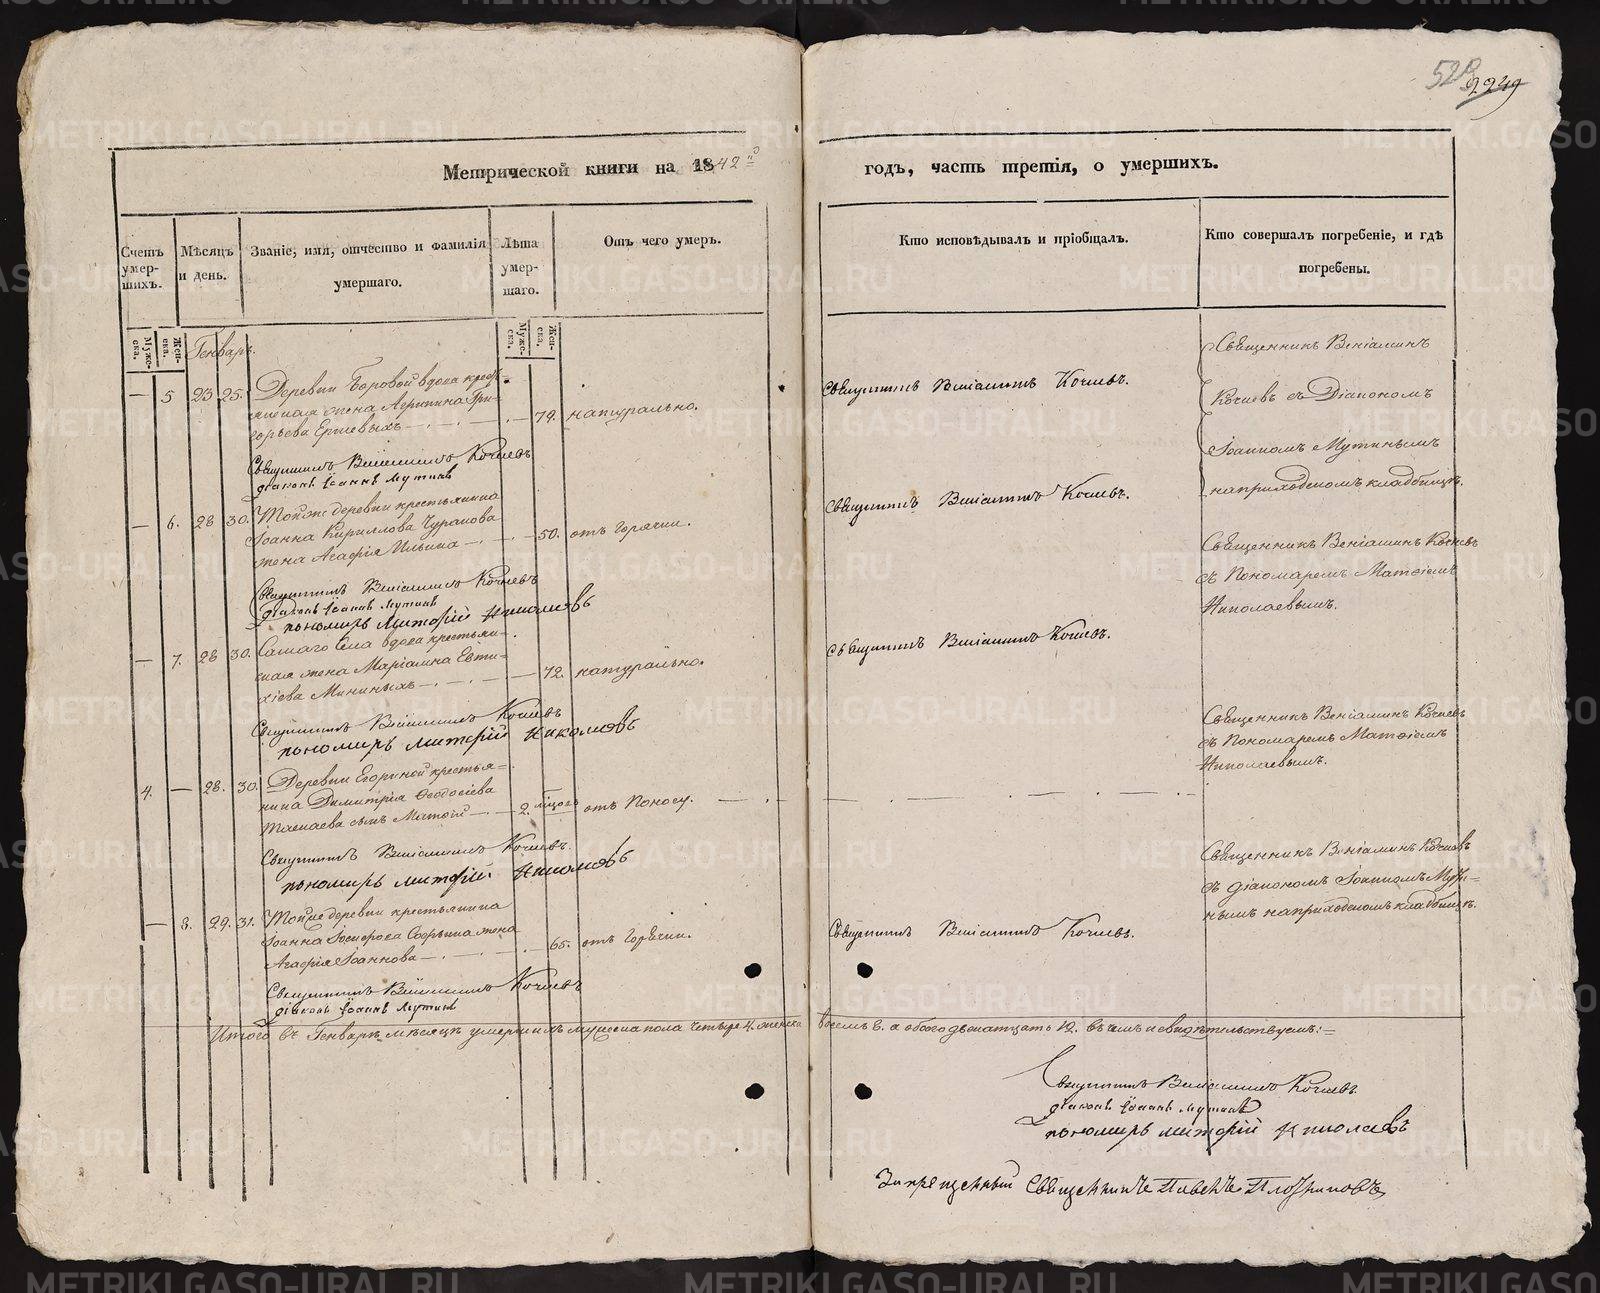 529
2249
Метрической книги на 1842й
годъ, часть третія, о умершихъ.
Счетъ умер-шихъ.
Мѣсяцъ и день.
Званіе, имя, отчество и фамилія умершаго.
Лѣта умер-шаго.
Отъ чего умеръ.
Кто исповѣдывалъ и пріобщалъ.
Кто совершалъ погребеніе, и гдѣ погребены.
Муже-ска.
Жен-ска.
Муже-ска.
Жен-ска.
Генварь.
— 5 23 25. Деревни Боровой вдова кресть-
янская жена Агрипина Гри-
горьева Ершевыхъ — 79. натурально.
Священникъ Веніаминъ Кочневъ.
Священникъ Веніаминъ
Кочневъ съ Діакономъ
Іоанномъ Мутинымъ
на приходскомъ кладбищѣ.
Священникъ Веніаминъ Кочневъ
діаконъ Іоаннъ Мутинъ
— 6. 28 30. Той же деревни крестьянина
Іоанна Кириллова Чуранова
жена Агафія Ильина — 50. отъ Горячки.
Священникъ Веніаминъ Кочневъ.
Священникъ Веніаминъ Кочневъ
съ Пономаремъ Матѳіемъ
Николаевымъ.
Священникъ Веніаминъ Кочневъ
діаконъ Іоаннъ Мутинъ
пономарь Матфій Николаевъ
— 7. 28 30. Самаго Села вдова крестьян-
ская жена Маріамна Евти-
хіева Мининыхъ — 72. натурально.
Священникъ Веніаминъ Кочневъ.
Священникъ Веніаминъ Кочневъ
съ Пономаремъ Матѳіемъ
Николаевымъ.
Священникъ Веніаминъ Кочневъ
пономарь Матфій Николаевъ
4. — 28. 30. Деревни Егориной крестья-
нина Димитрія Ѳеодосіева
сынъ Матѳій — 2. отъ Поносу.
Священникъ Веніаминъ Кочневъ
съ діакономъ Іоанномъ Мути-
нымъ на приходскомъ кладбищѣ.
Священникъ Веніаминъ Кочневъ.
пономарь Матфій Николаевъ
— 8. 29. 31. Той же деревни крестьянина
Іоанна жена
Агафія Іоаннова — 65. отъ Горячки.
Священникъ Веніаминъ Кочневъ.
Священникъ Веніаминъ Кочневъ
діаконъ Іоаннъ Мутинъ
Итого въ Генварѣ мѣсяцѣ умершихъ мужеска пола четыре 4. женска восемь 8. а обоего двенатцать 12. въ чемъ и свидѣтельствуемъ:=
Священникъ Веніаминъ Кочневъ.
діаконъ Іоаннъ Мутинъ
пономарь Матфій Николаевъ
Запрещенный Священникъ Павелъ Плотниковъ